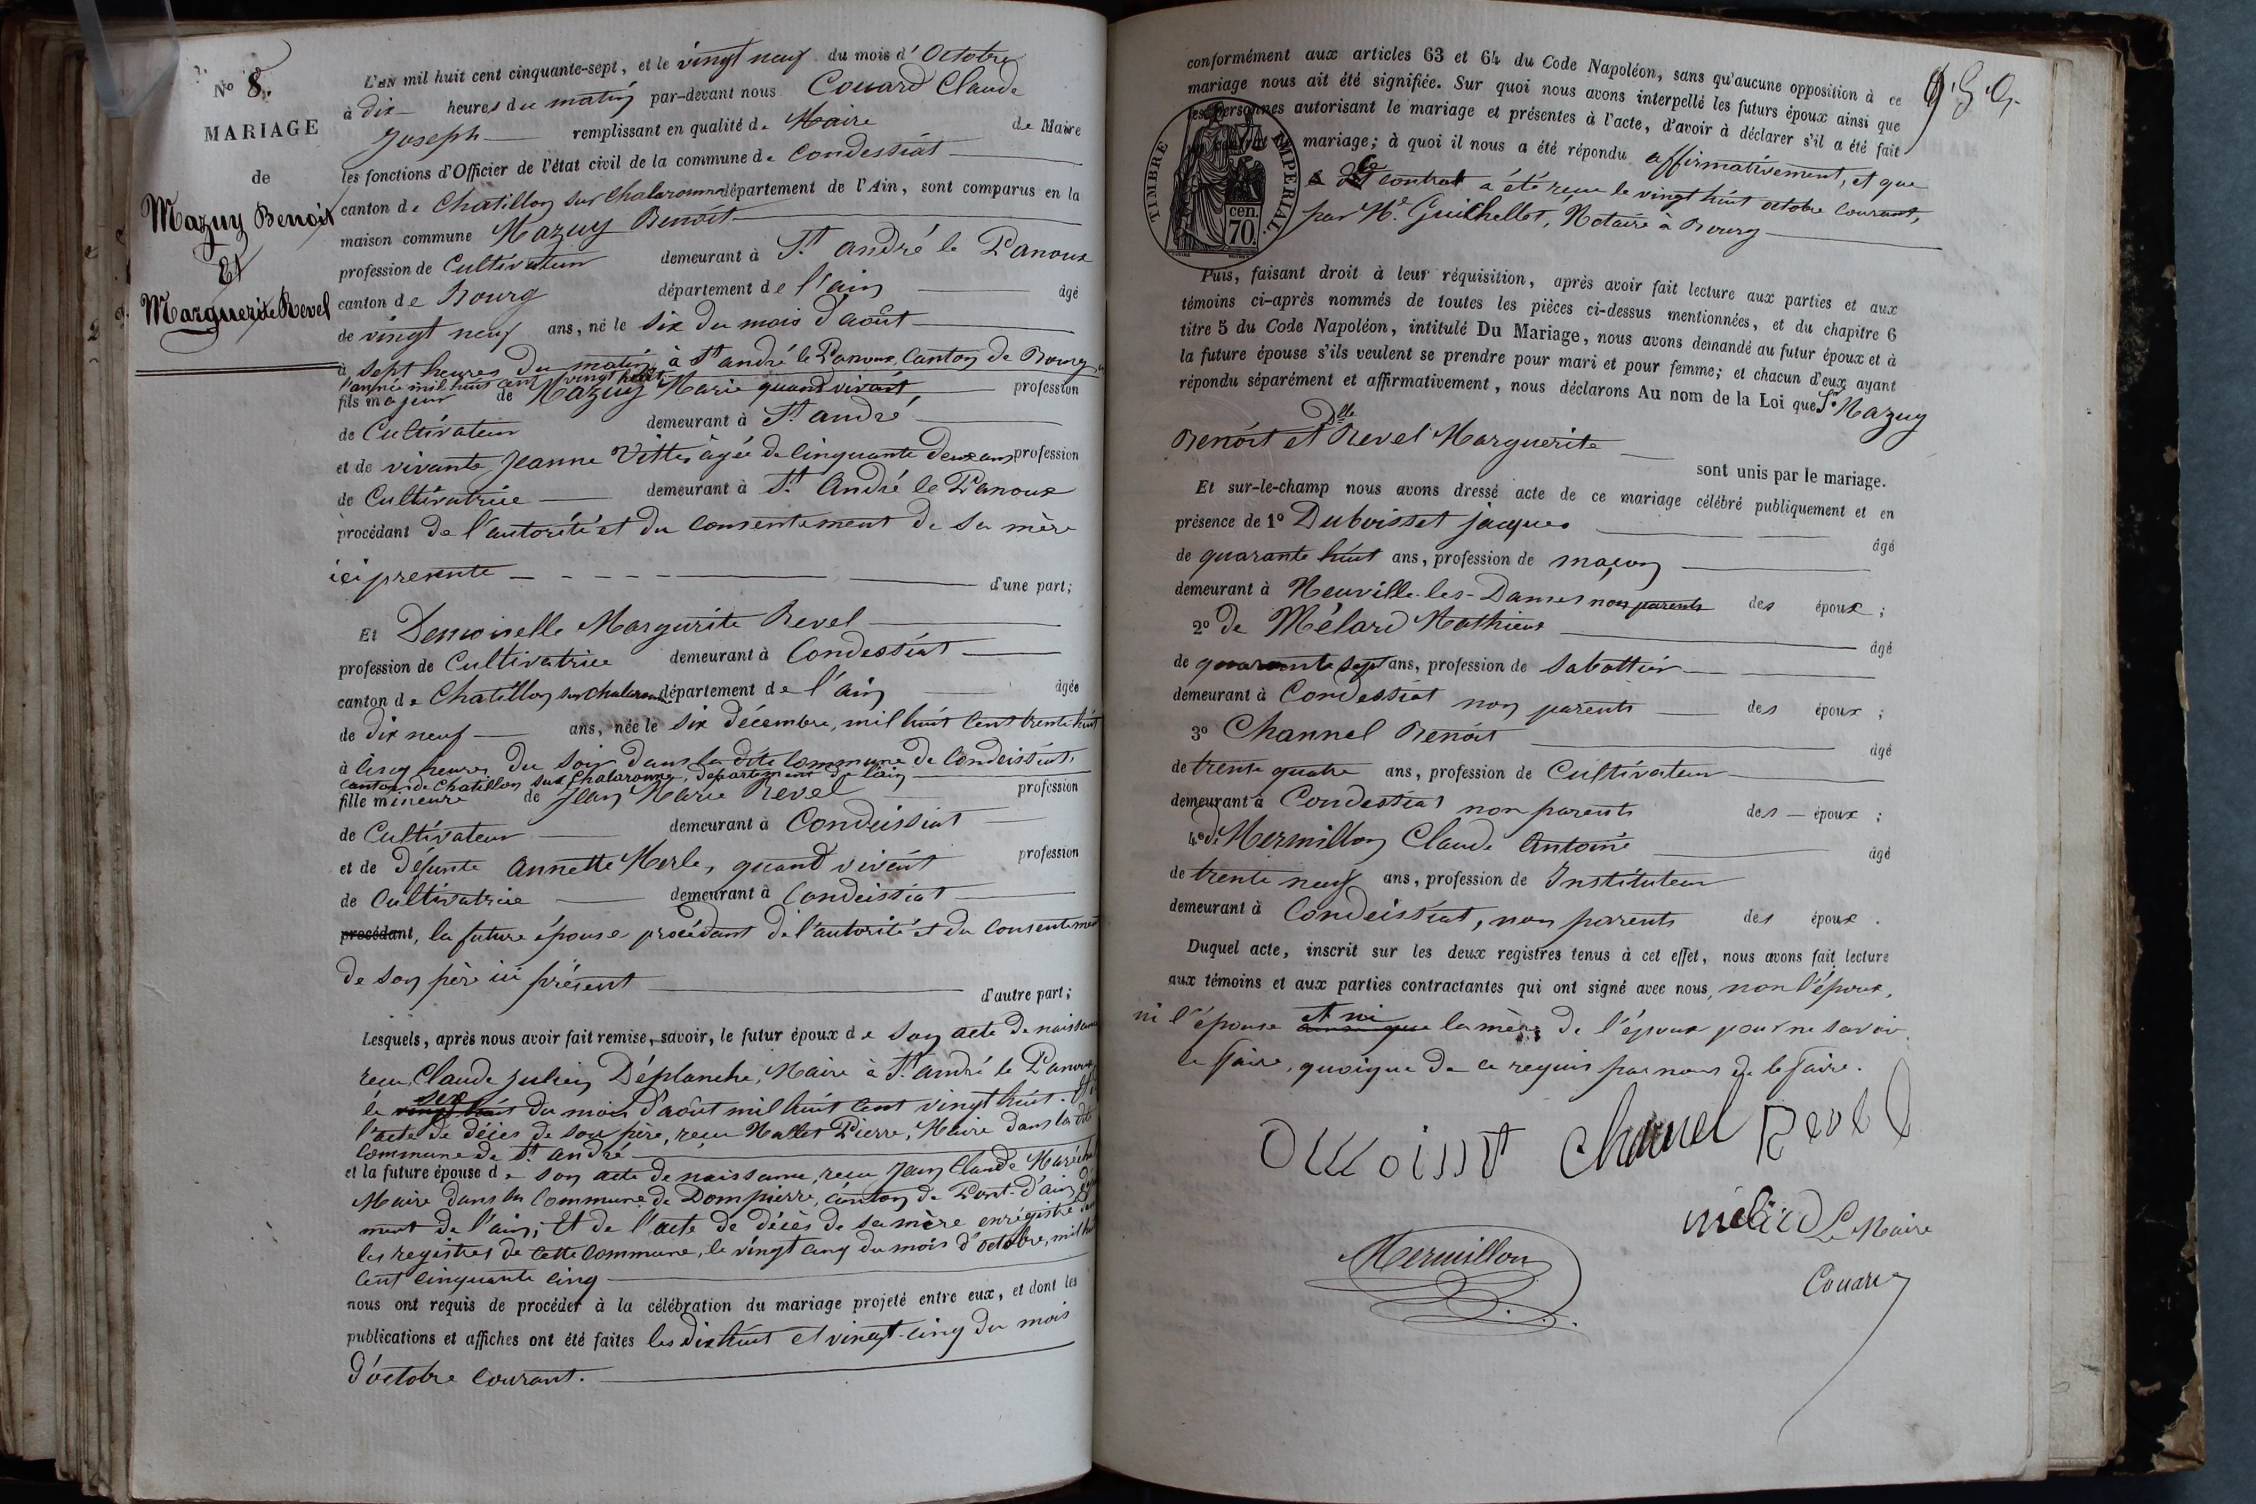 N° 8.
MARIAGE
de
Mazuy Benoit
Et
Marguerite Revel
L'AN mil huit cent cinquante-sept, et le vingt neuf du mois d'Octobre
à dix heures du matin par-devant nous Couard Claude
Joseph remplissant en qualité de Maire de Maire
les fonctions d'Officier de l'état civil de la commune de Condessiat
canton de Chatillon sur Chalaronne département de l'Ain, sont comparus en la
maison commune Mazuy Benoit
profession de Cultivateur demeurant à St. andré le Panoux
canton de Bourg département de l'ain âgé
de vingt neuf ans, né le six du mois d'août
à sept heures du matin à St andré le Panoux, Canton de Bourg
l'année mil huit cent vingt huit
fils majeur de Mazuy Marie quand vivait profession
de Cultivateur demeurant à St. andré
et de vivante Jeanne Vitte, âgée de cinquante deux ans profession
de Cultivatrice demeurant à St. André le Panoux
procédant de l'autorité et du consentement de sa mère
ici presente d'une part;
Et Demoiselle Margurite Revel
profession de Cultivatrice demeurant à Condessiat
canton de Chatillon sur chalaronne département de l'ain âgée
de dix neuf ans, née le six décembre, mil huit cent trente huit
à cinq heures du soir dans la dite commune de Condeissiat,
canton de Chatillon sur Chalaronne, département de l'ain
fille mineure de Jean Marie Revel profession
de Cultivateur demeurant à Condeissiat
et de défunte Annette Merle, quand vivait profession
de Cultivatrice demeurant à Condeissiat
procédant, la future épouse procédant de l'autorité et du consentement
de son père ici présent d'autre part;
Lesquels, après nous avoir fait remise, savoir, le futur époux de son acte de naissance
reçu, Claude Julien Déplanche, Maire à St. andré le Panoux
le six du mois d'août mil huit cent vingt huit. Et
l'acte de décès de son père, reçu Mallet Pierre, Maire dans la dite
commune de St. andré
et la future épouse de son acte de naissance, reçu Jean Claude Maréchal
Maire dans la Commune de Dompierre, canton de Pont-d'ain
ment de l'ain; Et de l'acte de décès de sa mère enrégistré
les registres de cette commune, le vingt cinq du mois d'octobre, mil huit
cent cinquante cinq
nous ont requis de procéder à la célébration du mariage projeté entre eux, et dont les
publications et affiches ont été faites les dix huit et vingt-cinq du mois
d'octobre courant.
conformément aux articles 63 et 64 du Code Napoléon, sans qu'aucune opposition à ce
mariage nous ait été signifiée. Sur quoi nous avons interpellé les futurs époux ainsi que
les personnes autorisant le mariage et présentes à l'acte, d'avoir à déclarer s'il a été fait
un contrat de mariage; à quoi il nous a été répondu affirmativement, et que
le contrat a été reçu le vingt huit octobre courant,
par Me. Guichellet, Notaire à Bourg
TIMBRE IMPERIAL
cen.
70.
Puis, faisant droit à leur réquisition, après avoir fait lecture aux parties et aux
témoins ci-après nommés de toutes les pièces ci-dessus mentionnées, et du chapitre 6
titre 5 du Code Napoléon, intitulé Du Mariage, nous avons demandé au futur époux et à
la future épouse s'ils veulent se prendre pour mari et pour femme; et chacun d'eux ayant
répondu séparément et affirmativement, nous déclarons Au nom de la Loi que Sr. Mazuy
Benoit et Dlle Revel Marguerite
sont unis par le mariage.
Et sur-le-champ nous avons dressé acte de ce mariage célébré publiquement et en
présence de 1° Duboisset jacques âgé
de quarante huit ans, profession de maçon
demeurant à Neuville-les-Dames non parents des époux;
2° de Mélard Mathieu âgé
de quarante sept ans, profession de sabottier
demeurant à Condessiat non parents des époux;
3° Channel Benoit âgé
de trente quatre ans, profession de Cultivateur
demeurant à Condessiat non parents des époux;
4° de Mermillon Claude Antoine âgé
de trente neuf ans, profession de Instituteur
demeurant à Condeissiat, non parents des époux.
Duquel acte, inscrit sur les deux registres tenus à cet effet, nous avons fait lecture
aux témoins et aux parties contractantes qui ont signé avec nous, non l'époux,
ni l'épouse et ni la mère de l'époux pour ne savoir
le faire, quoique de ce requis par nous de le faire.
Channel Revel
mélard Le Maire
Mermillon
Couard